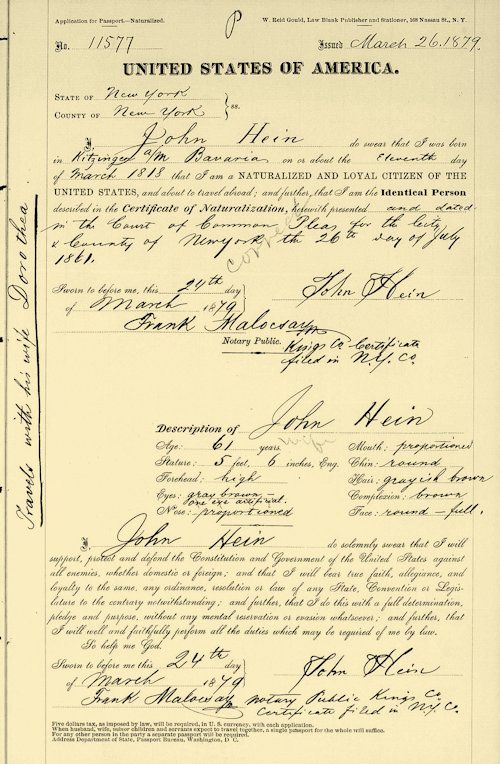 Application for Passport—Naturalized.
W. Reid Gould, Law Blank Publisher and Stationer, 168 Nassau St., N. Y.
P
No. 11577
Issued March 26. 1879.
UNITED STATES OF AMERICA.
STATE OF New York
COUNTY OF New York } ss.
I, John Hein do swear that I was born
in Kitzingen a/m Bavaria on or about the Eleventh day
of March 1818 that I am a NATURALIZED AND LOYAL CITIZEN OF THE
UNITED STATES, and about to travel abroad; and further, that I am the Identical Person
described in the Certificate of Naturalization, herewith presented and dated
in the Court of Common Pleas for the City
& County of New York, the 26th day of July
1861.
Sworn to before me, this 24th day
of March 1879
John Hein
Frank Malocsay
Notary Public.
Kings Co Certificate
filed in N.Y. Co.
Travels with his wife Dorothea
Description of John Hein
wife
Age: 61 years.
Mouth: proportioned
Stature: 5 feet, 6 inches, Eng.
Chin: round
Forehead: high
Hair: grayish brown
Eyes: gray brown —
one eye artificial.
Complexion: brown
Nose: proportioned
Face: round — full.
I, John Hein do solemnly swear that I will
support, protect and defend the Constitution and Government of the United States against
all enemies, whether domestic or foreign; and that I will bear true faith, allegiance, and
loyalty to the same, any ordinance, resolution or law of any State, Convention or Legis-
lature to the contrary notwithstanding; and further, that I do this with a full determination,
pledge and purpose, without any mental reservation or evasion whatsoever; and further, that
I will well and faithfully perform all the duties which may be required of me by law.
So help me God.
Sworn to before me this 24th day
of March 1879
John Hein
Frank Malocsay Notary Public Kings Co.
Certificate filed in N.Y. Co
Five dollars tax, as imposed by law, will be required, in U. S. currency, with each application.
When husband, wife, minor children and servants expect to travel together, a single passport for the whole will suffice.
For any other person in the party a separate passport will be required.
Address Department of State, Passport Bureau, Washington, D C.